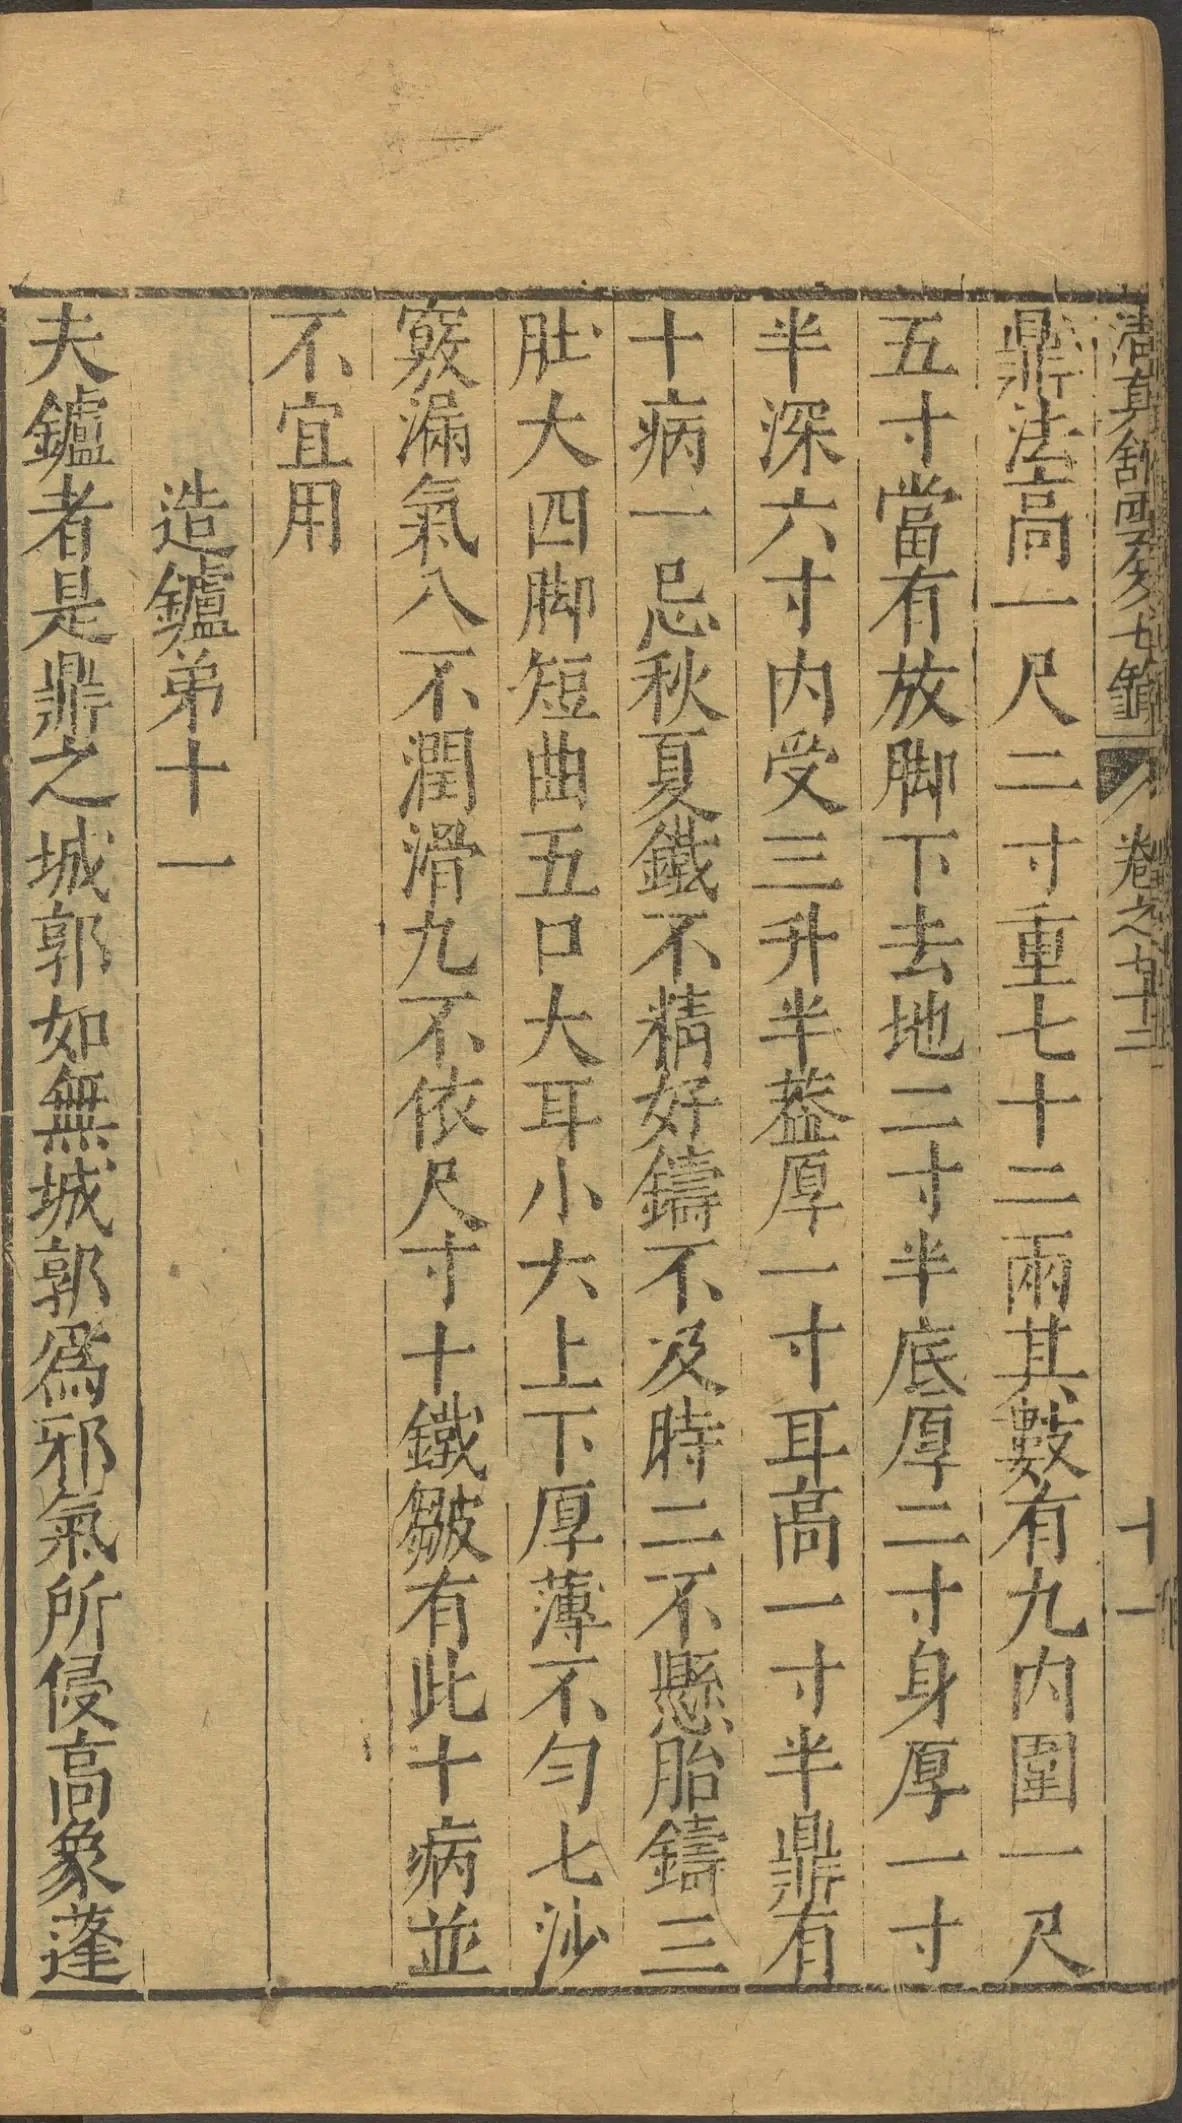 清真舘雲笈七籤 卷之七十二 十一
鼎法高一尺二寸重七十二兩其數有九内圍一尺
五寸當有放脚下去地二寸半底厚二寸身厚一寸
半深六寸内受三升半葢厚一寸耳高一寸半鼎有
十病一忌秋夏鐵不精好鑄不及時二不懸胎鑄三
肚大四脚短曲五口大耳小六上下厚薄不勻七沙
竅漏氣八不潤滑九不依尺寸十鐵皺有此十病並
不宜用
造鑪弟十一
夫鑪者是鼎之城郭如無城郭爲邪氣所侵高象蓬